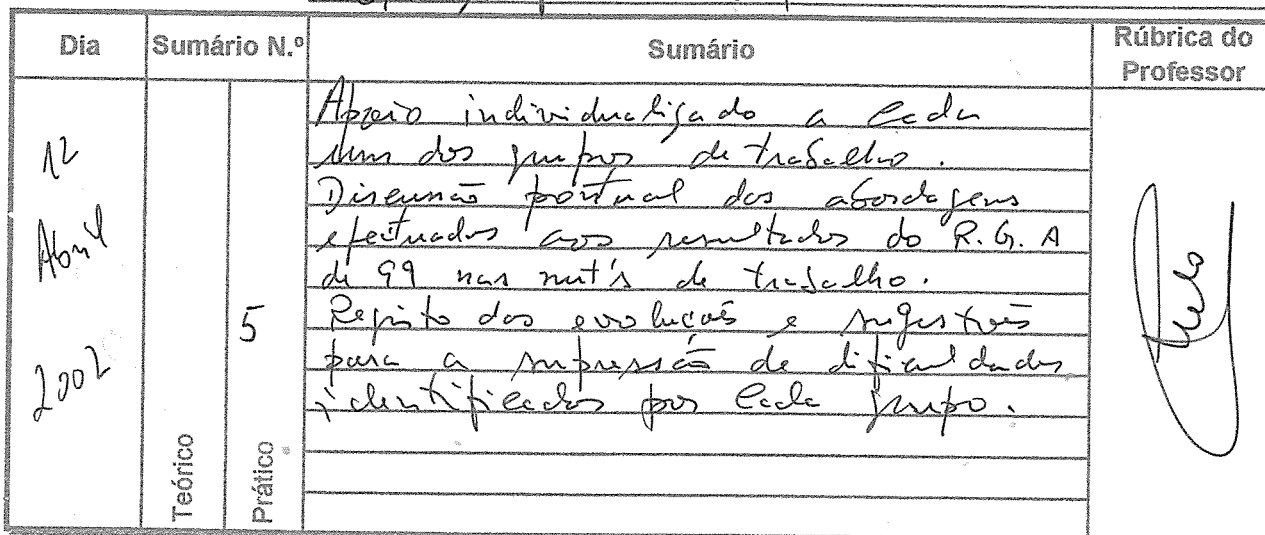 Dia
Sumário N.º
Sumário
Rúbrica do
Professor
12
Abril
2002
Teórico
5
Prático
Apoio individualizado a cada
um dos grupos de trabalho.
Discussão pontual das abordagens
efectuadas aos resultados do R.G.A
de 99 nas nut's de trabalho.
Registo das evoluções e sugestões
para a supressão de dificuldades
identificadas por cada grupo.